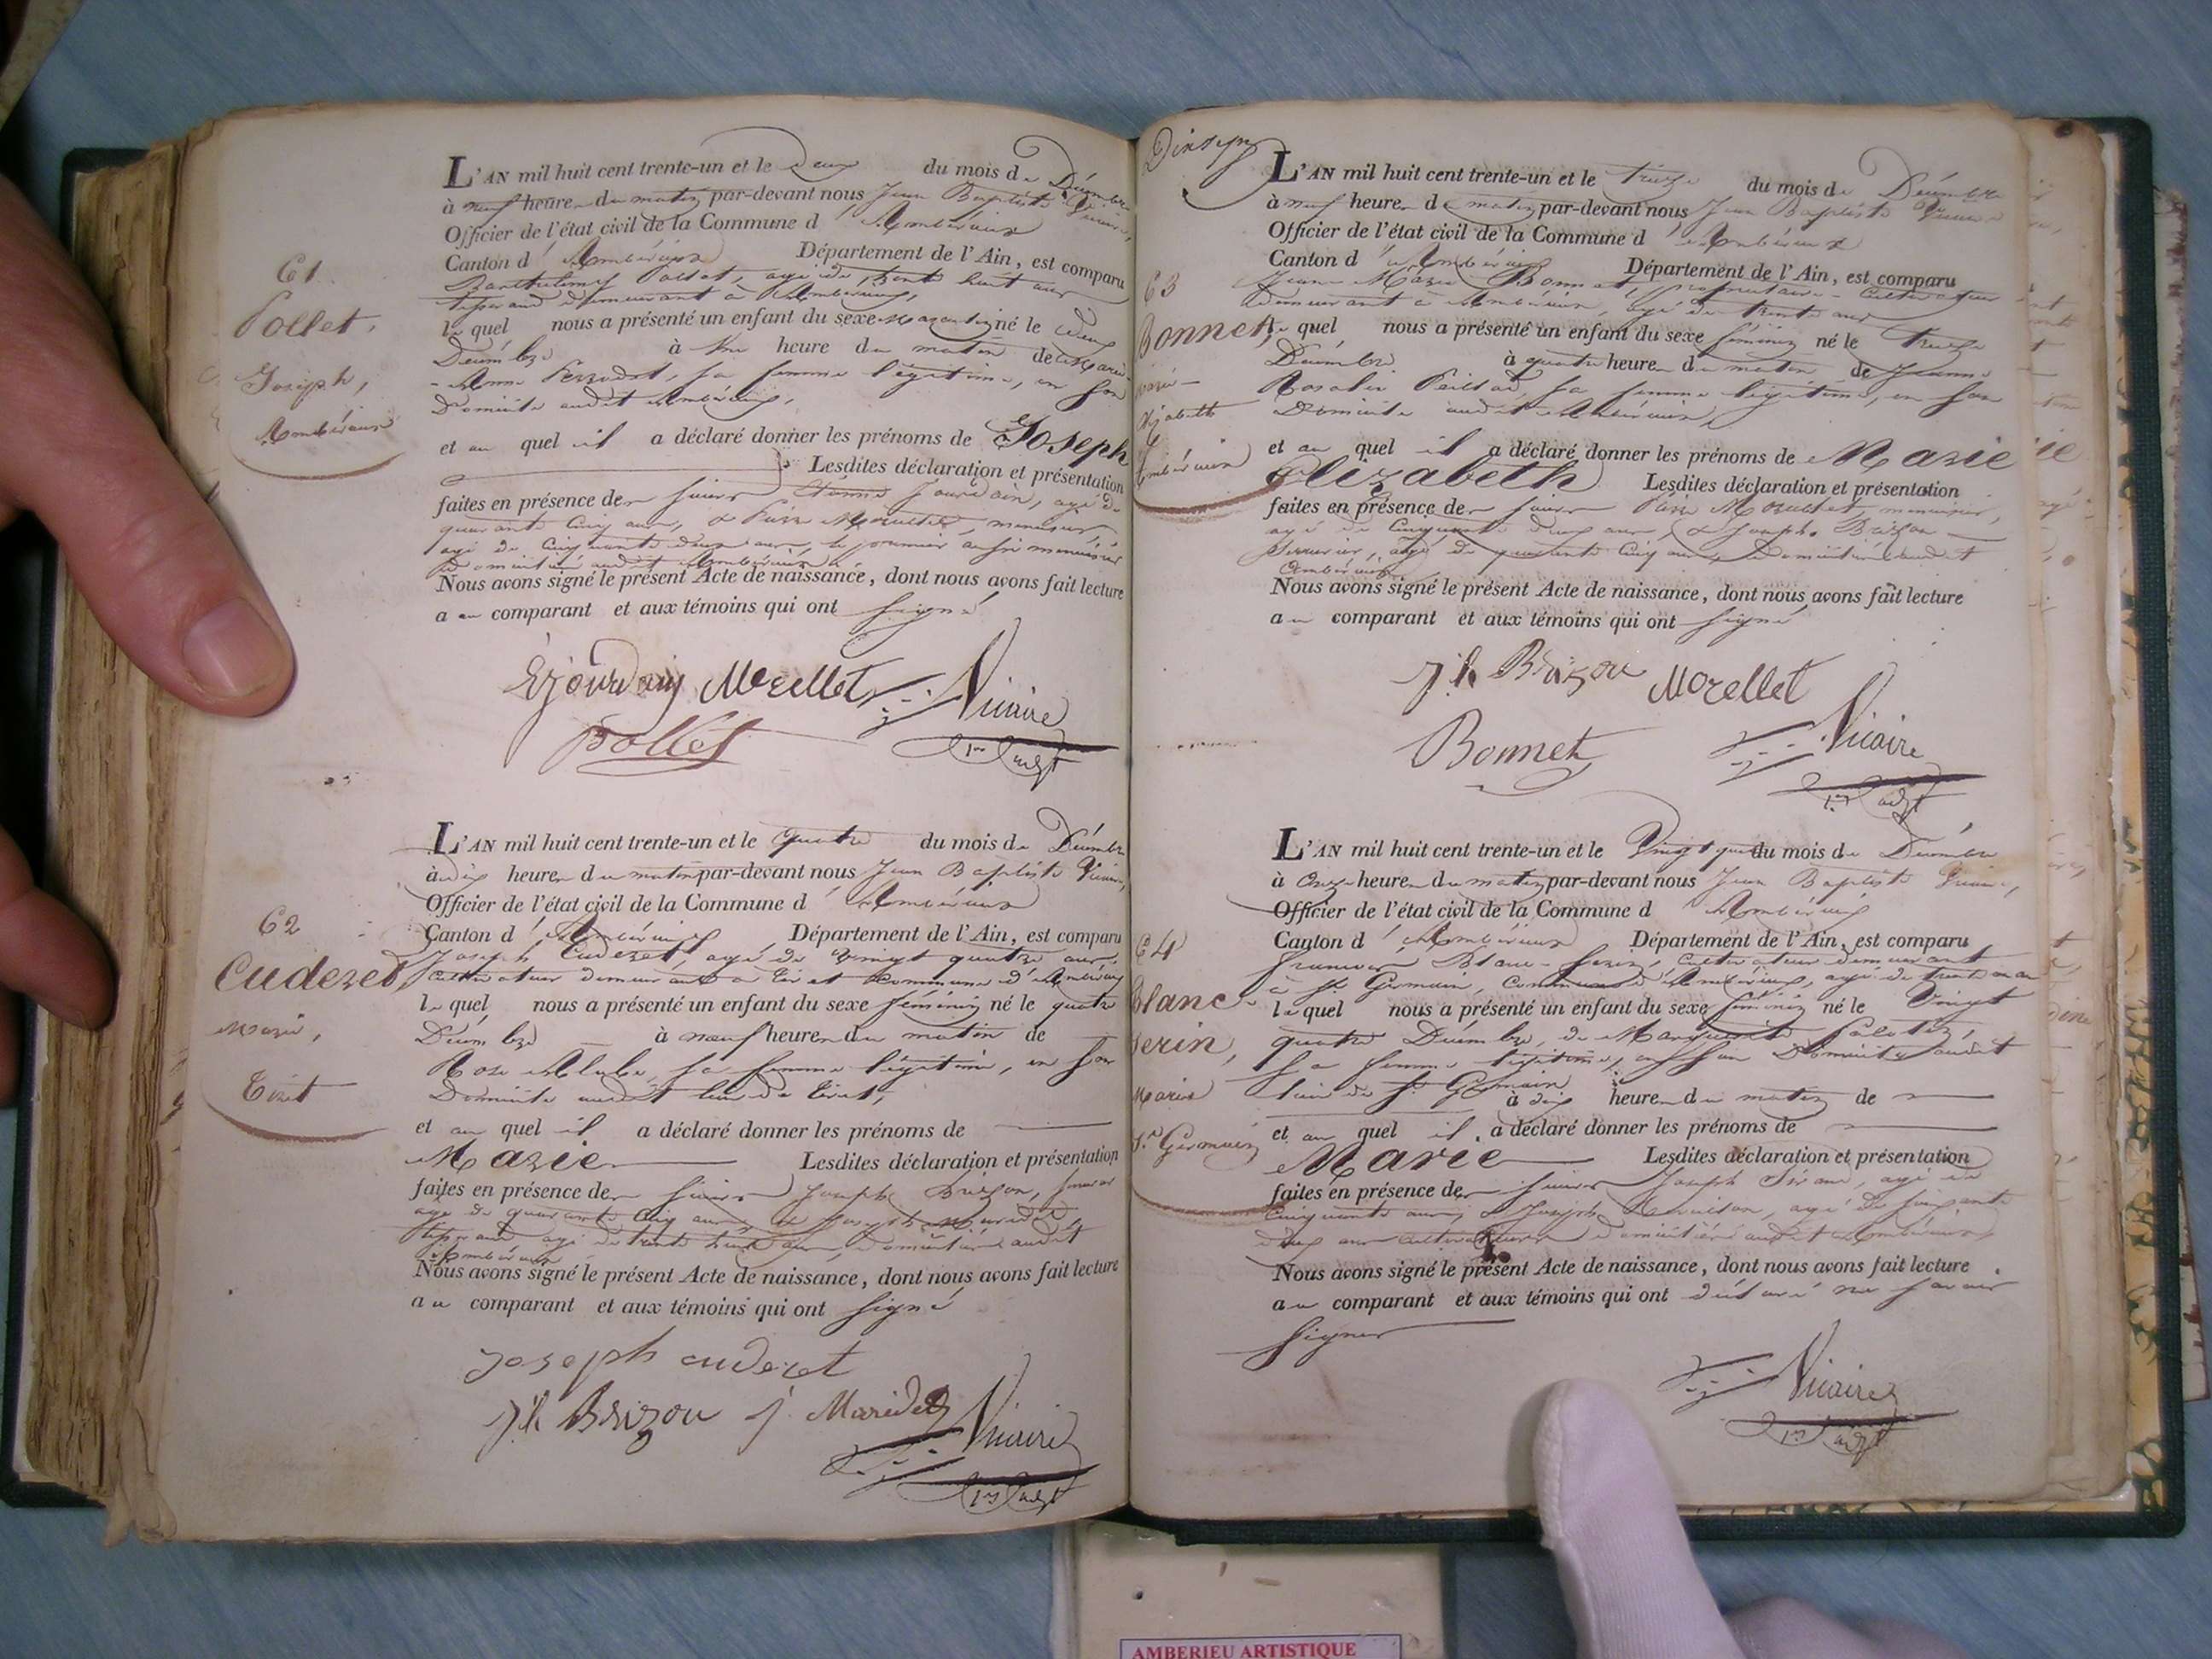 61
Pollet,
Joseph,
Ambérieux
L'AN mil huit cent trente-un et le deux du mois de Décembre
à neuf heures du matin par-devant nous Jean Baptiste Vicaire,
Officier de l'état civil de la Commune d'Ambérieux
Canton d'Ambérieux Département de l'Ain, est comparu
Barthelemy Pollet, agé de trente huit ans
tisserand demeurant à Ambérieux,
lequel nous a présenté un enfant du sexe masculin né le deux
Décembre à une heure du matin de Marie
-Anne sa femme légitime, en son
Domicile audit Ambérieux,
et auquel il a déclaré donner les prénoms de Joseph
Lesdites déclaration et présentation
faites en présence des sieurs Etienne Jourdain, agé de
quarante cinq ans, & Pierre Morellet, menuisier,
agé de cinquante deux ans, le premier aussi menuisier
domiciliés audit Ambérieux
Nous avons signé le présent Acte de naissance, dont nous avons fait lecture
au comparant et aux témoins qui ont signé
Ejourdain Morellet Vicaire
Pollet 1er adjt
62
Cuderet,
Marie,
Tiret
L'AN mil huit cent trente-un et le quatre du mois de Décembre
à dix heures du matin par-devant nous Jean Baptiste Vicaire,
Officier de l'état civil de la Commune d'Ambérieux
Canton d'Ambérieux Département de l'Ain, est comparu
Joseph Cuderet, agé de vingt quatre ans,
cultivateur demeurant à Tiret Commune d'Ambérieux
lequel nous a présenté un enfant du sexe féminin né le quatre
Décembre à neuf heures du matin de
Rose sa femme légitime, en son
Domicile audit lieu de Tiret,
et auquel il a déclaré donner les prénoms de
Marie Lesdites déclaration et présentation
faites en présence des sieurs Joseph Brizon, serrurier
agé de quarante cinq ans, & Joseph Maridet,
tisserand agé de trente huit ans, domiciliés audit
Ambérieux
Nous avons signé le présent Acte de naissance, dont nous avons fait lecture
au comparant et aux témoins qui ont signé
Joseph cuderet
Jh Brizon J. Maridet Vicaire
1er adjt
63
Bonnet,
Marie-
Elizabeth
Ambérieux
L'AN mil huit cent trente-un et le treize du mois de Décembre
à neuf heures du matin par-devant nous Jean Baptiste Vicaire
Officier de l'état civil de la Commune d'Ambérieux
Canton d'Ambérieux Département de l'Ain, est comparu
Jean Marie Bonnet, propriétaire-Cultivateur
demeurant à Ambérieux, agé de trente ans
lequel nous a présenté un enfant du sexe féminin né le treize
Décembre à quatre heures du matin de Jeanne
Rosalie sa femme légitime, en son
Domicile audit Ambérieux,
et auquel il a déclaré donner les prénoms de Marie
Elizabeth Lesdites déclaration et présentation
faites en présence des sieurs Pierre Morellet, menuisier,
agé de cinquante deux ans, & Joseph Brizon
serrurier, agé de quarante cinq ans, domiciliés audit
Ambérieux
Nous avons signé le présent Acte de naissance, dont nous avons fait lecture
au comparant et aux témoins qui ont signé
Jh Brizon Morellet
Bonnet Vicaire
1er adjt
64
Blanc-
Serin,
Marie
St Germain
L'AN mil huit cent trente-un et le Vingt quatre du mois de Décembre
à onze heures du matin par-devant nous Jean Baptiste Vicaire,
Officier de l'état civil de la Commune d'Ambérieux
Canton d'Ambérieux Département de l'Ain, est comparu
François Blanc-Serin, cultivateur demeurant
à St Germain, Commune d'Ambérieux, agé de trente ans
lequel nous a présenté un enfant du sexe féminin né le Vingt
quatre Décembre, de Marguerite
sa femme légitime, en son Domicile audit
lieu de St Germain
à dix heures du matin de
et auquel il a déclaré donner les prénoms de
Marie Lesdites déclaration et présentation
faites en présence des sieurs Joseph agé de
cinquante ans, & Joseph agé de soixante
deux ans cultivateurs domiciliés audit Ambérieux
Nous avons signé le présent Acte de naissance, dont nous avons fait lecture
au comparant et aux témoins qui ont déclaré ne savoir
signer
Vicaire
1er adjt
AMBERIEU ARTISTIQUE